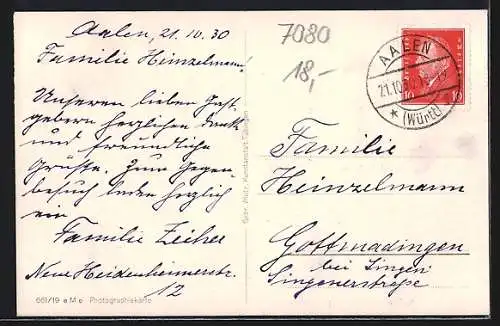 Aalen, 21.10.30
Familie Heinzelmann!
Unseren lieben Gast-
gebern herzlichen Dank
und freundliche
Grüsse. Zum Gegen-
besuch laden herzlich
ein
Familie Zeiher
Neue Heidenheimerstr.
12
661/19 a M o Photographiekarte
Gebr. Metz, Kunstanstalt, Tübingen
7080
18,-
AALEN
21.10.
* (Württ)
10
Familie
Heinzelmann
Gottmadingen
bei Singen
Singenerstraße